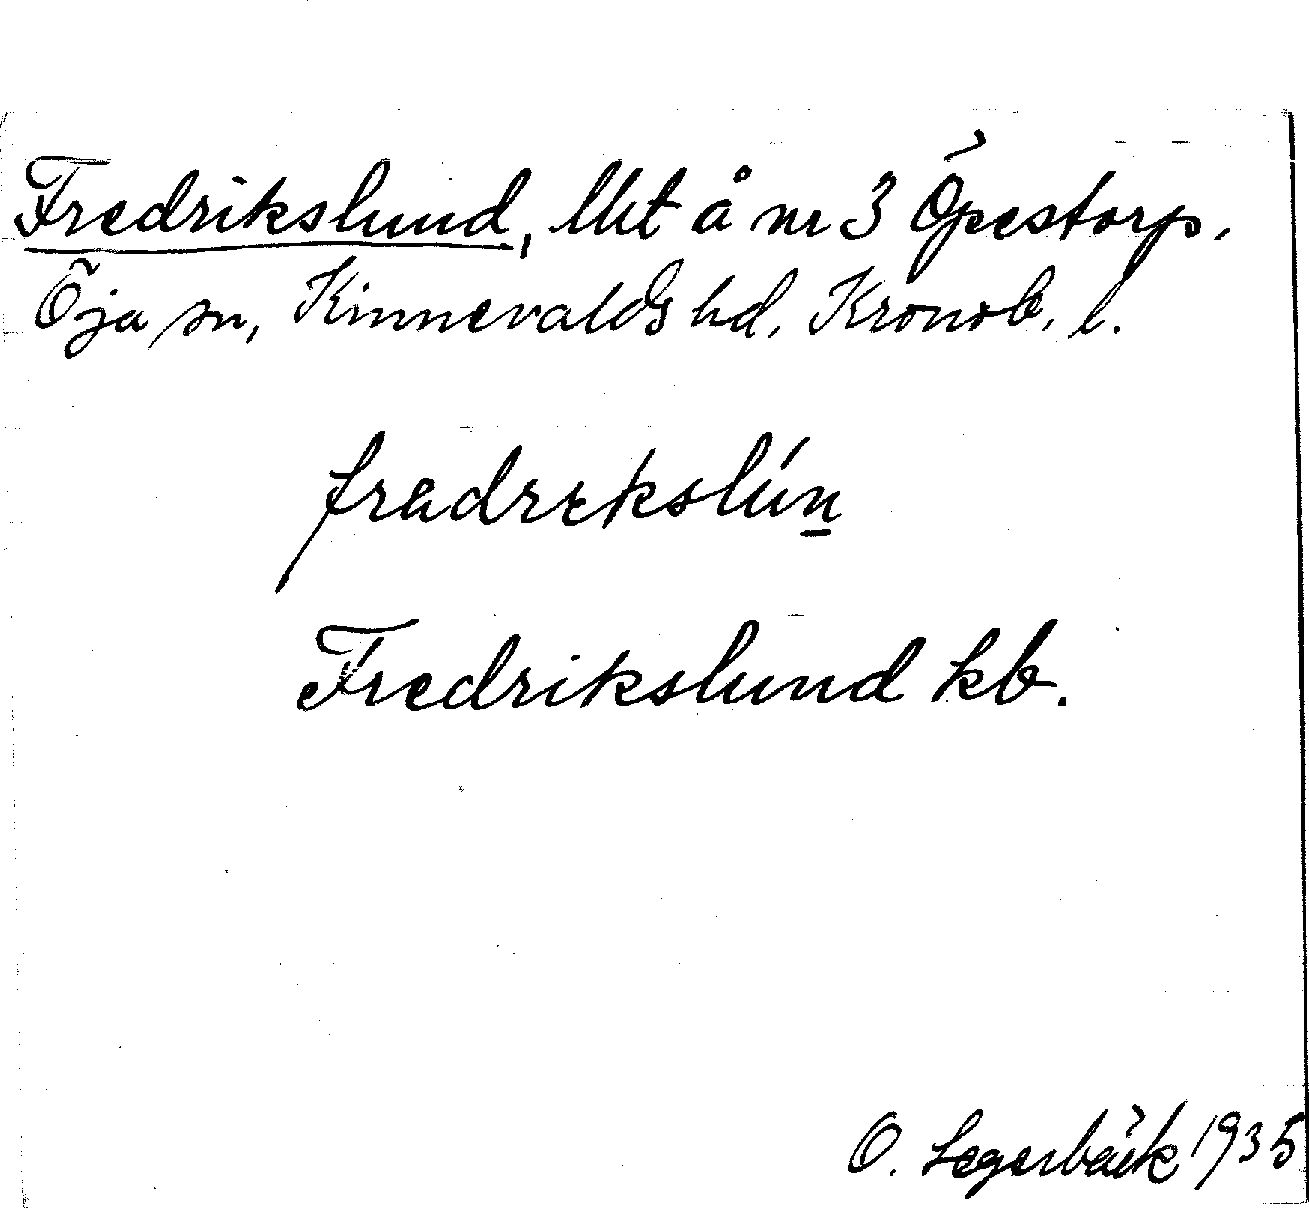 Fredrikslund, lht å nr 3 Öpestorp.
Öja sn, Kinnevalds hd, Kronob. l.
fradrekslún
Fredrikslund kb.
O. Segerbäck 1935